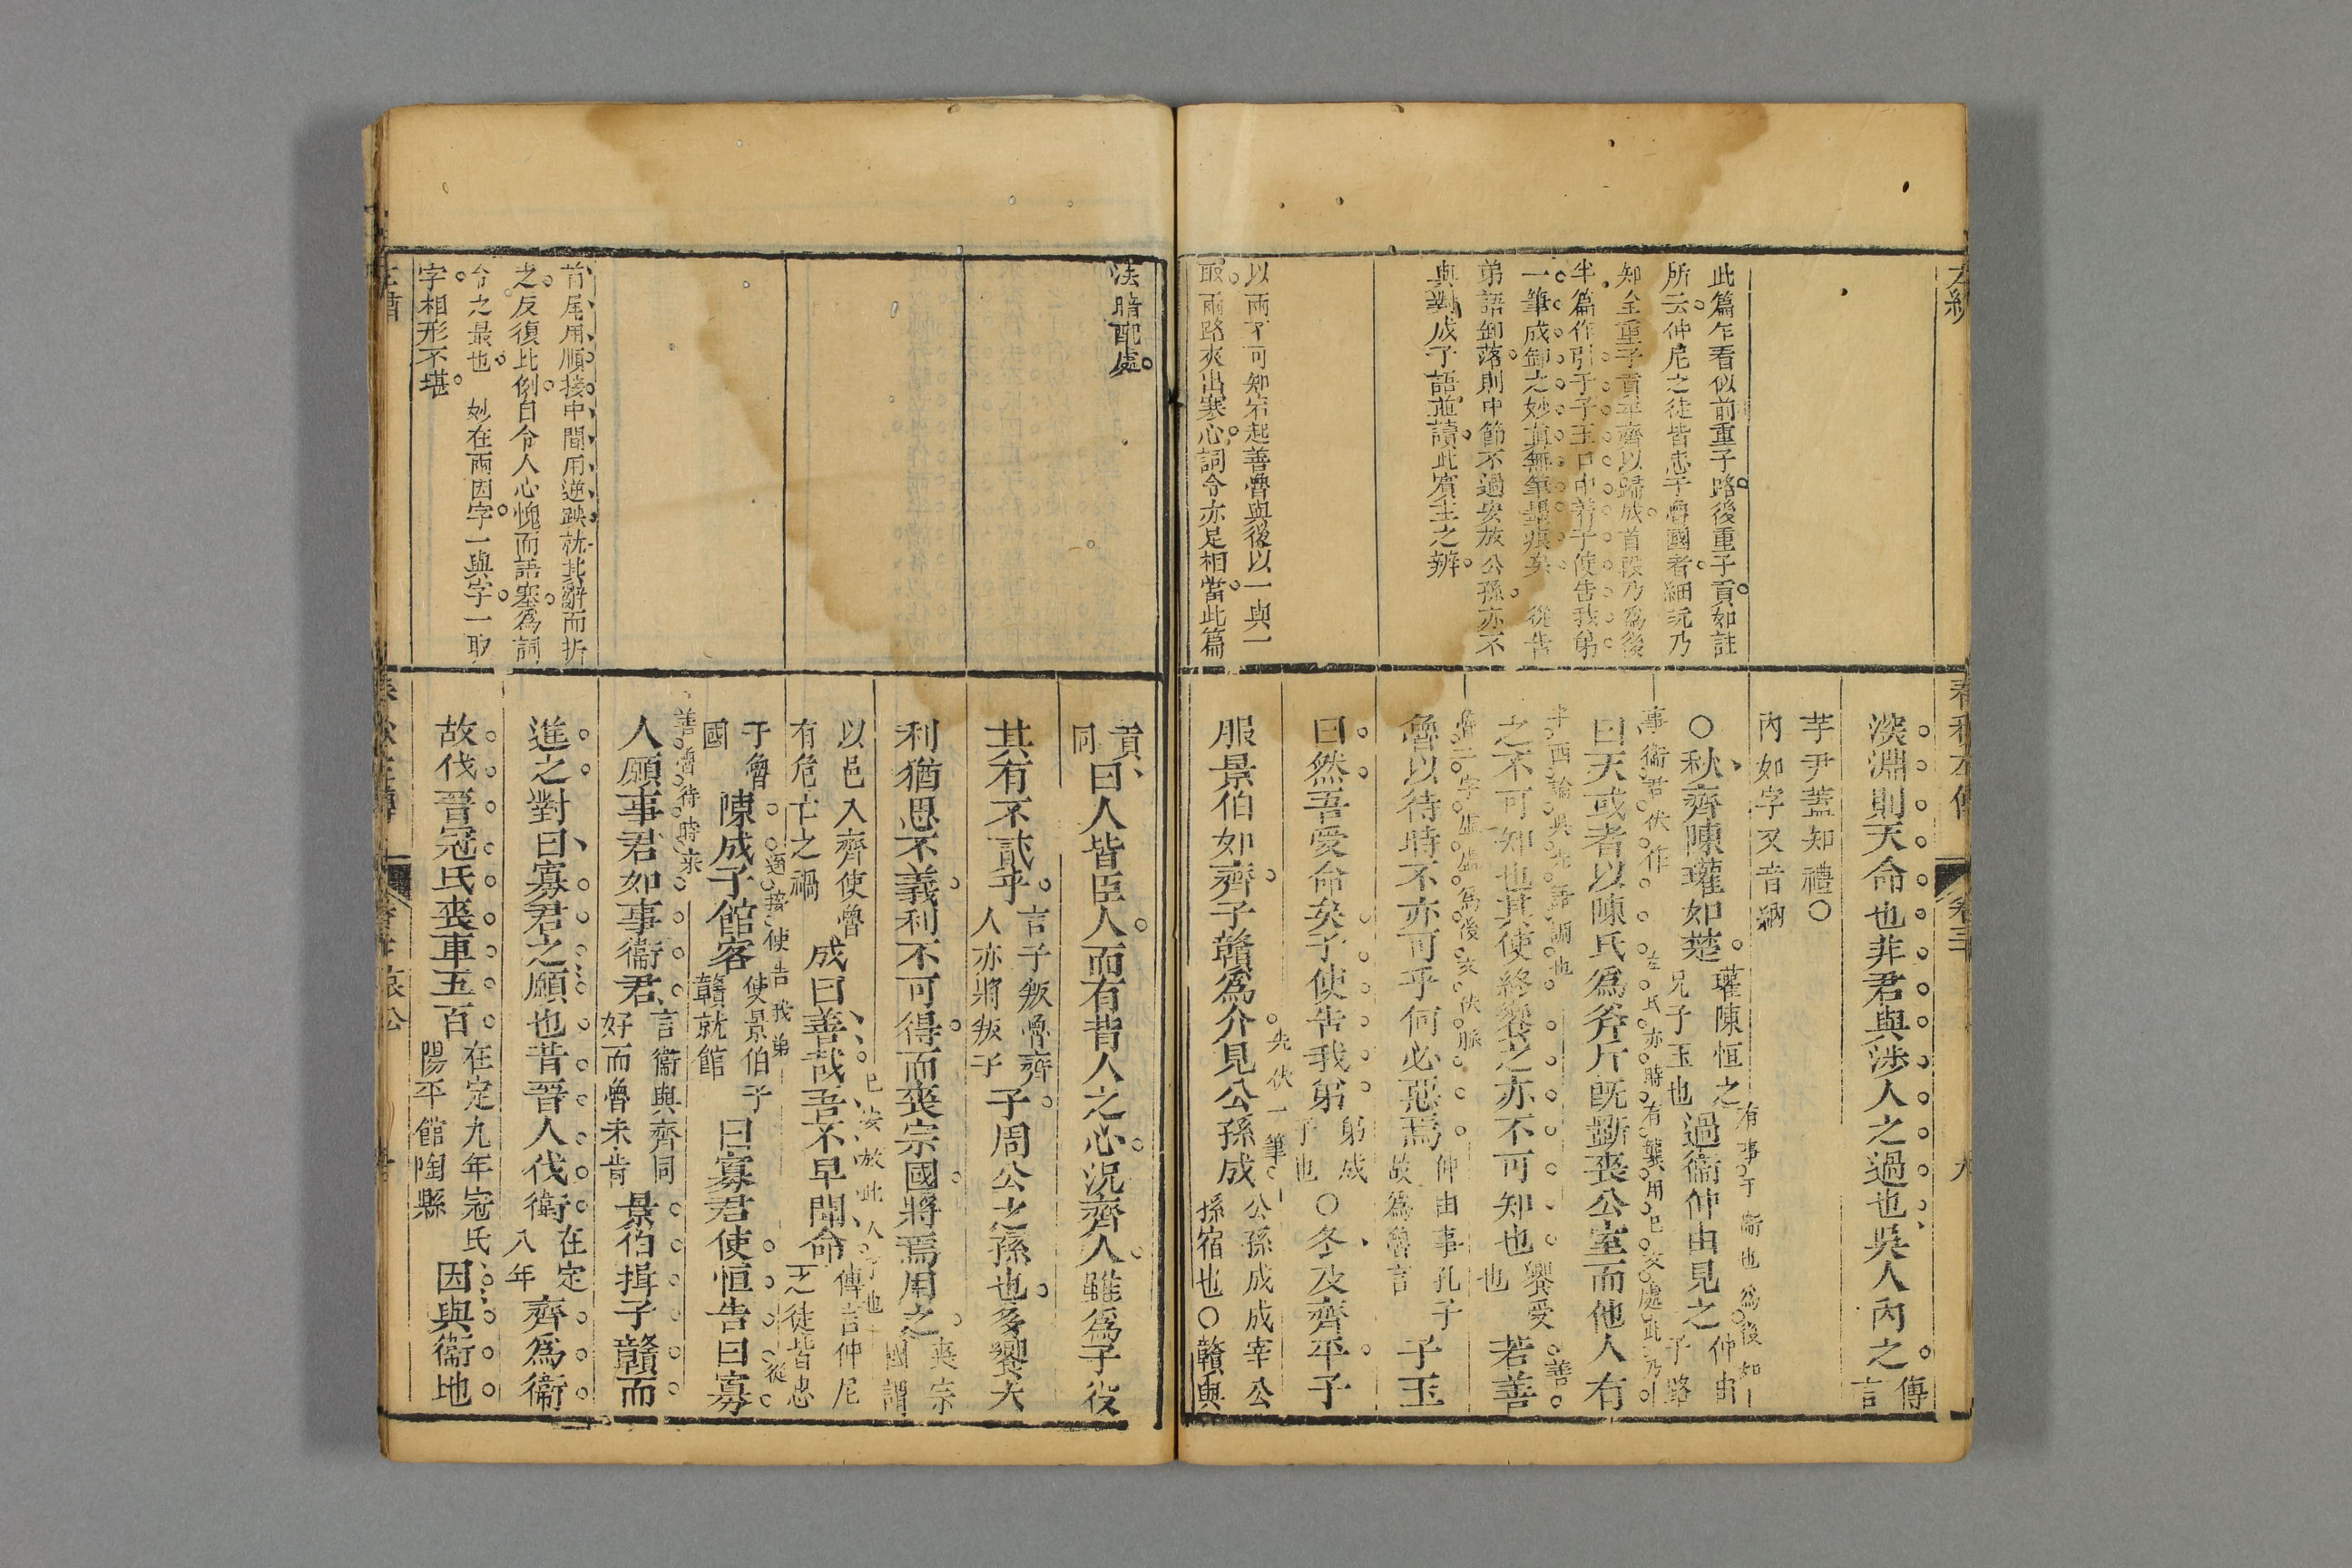 左繡
春秋左傳
卷三十
九
此篇乍看似前重子路後重子貢如註
所云仲尼之徒皆忠于魯國者細玩乃
知全重子貢平齊以歸成首段乃為後
半篇作引子子玉口中著子使告我弟
一筆成卸之妙真無筆墨痕矣 從告
弟語卸落則中節不過安放公孫亦不
與對成子語並讀此賓主之辨
以兩不可知宕起善魯與後以一與一
取兩路夾出寒心詞令亦足相當此篇
深淵則天命也非君與涉人之過也吳人內之傳言
芋尹蓋知禮○
內如字又音納
○秋齊陳瓘如楚瓘陳恒之兄子玉也過衛仲由見之仲由子路
有事于衛也為後如
事衛君伏作
曰天或者以陳氏為斧斤既斲喪公室而他人有
左氏亦時有襲用已文處此乃
之不可知也其使終饗之亦不可知也饗受也若善
善
魯以待時不亦可乎何必惡焉仲由事孔子故為魯言子玉
魯二字虛虛為後文伏脈
曰然吾受命矣子使告我弟弟成子也○冬及齊平子
服景伯如齊子贛為介見公孫成公孫成成宰公孫宿也○贛與
先伏一筆
法暗配處
首尾用順接中間用逆跌就其辭而折
之反復比例自令人心愧而語塞為詞
令之最也 妙在兩因字一與字一取
字相形不堪
貢同曰人皆臣人而有背人之心況齊人雖為子役
其有不貳乎言子叛魯齊人亦將叛子子周公之孫也多饗大
利猶思不義利不可得而喪宗國將焉用之喪宗國謂
以邑入齊使魯有危亡之禍成曰善哉吾不早聞命傳言仲尼之徒皆忠
已安放此人了也
于魯國陳成子館客使景伯子贛就館曰寡君使恒告曰寡
遙接使告我弟
從
善魯待時來
人願事君如事衛君言衛與齊同好而魯未肯景伯揖子贛而
進之對曰寡君之願也昔晉人伐衛在定八年齊為衛
故伐晉冠氏喪車五百在定九年冠氏陽平館陶縣因與衛地